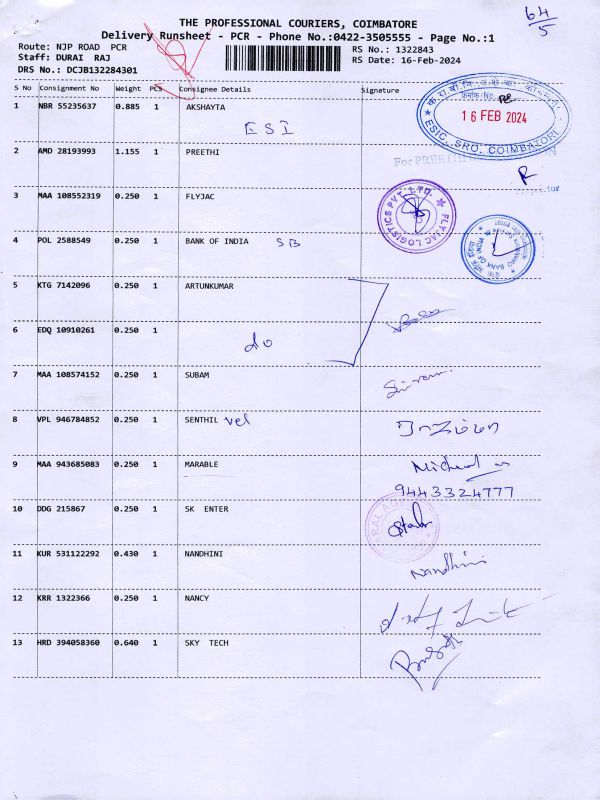 64/5
THE PROFESSIONAL COURIERS, COIMBATORE
Delivery Runsheet - PCR - Phone No.:0422-3505555 - Page No.:1
Route: NJP ROAD PCR
RS No.: 1322843
Staff: DURAI RAJ
RS Date: 16-Feb-2024
DRS No.: DCJB132284301
S No Consignment No Weight PCS Consignee Details Signature
1 NBR 55235637 0.885 1 AKSHAYTA
ESI
16 FEB 2024
ESIC, SRO, COIMBATORE
2 AMD 28193993 1.155 1 PREETHI
3 MAA 108552319 0.250 1 FLYJAC
FLYJAC LOGISTICS PVT. LTD.
4 POL 2588549 0.250 1 BANK OF INDIA SB
5 KTG 7142096 0.250 1 ARTUNKUMAR
6 EDQ 10910261 0.250 1
do
7 MAA 108574152 0.250 1 SUBAM
8 VPL 946784852 0.250 1 SENTHIL vel
9 MAA 943685083 0.250 1 MARABLE
9443324777
10 DDG 215867 0.250 1 SK ENTER
11 KUR 531122292 0.430 1 NANDHINI
Nandhini
12 KRR 1322366 0.250 1 NANCY
13 HRD 394058360 0.640 1 SKY TECH